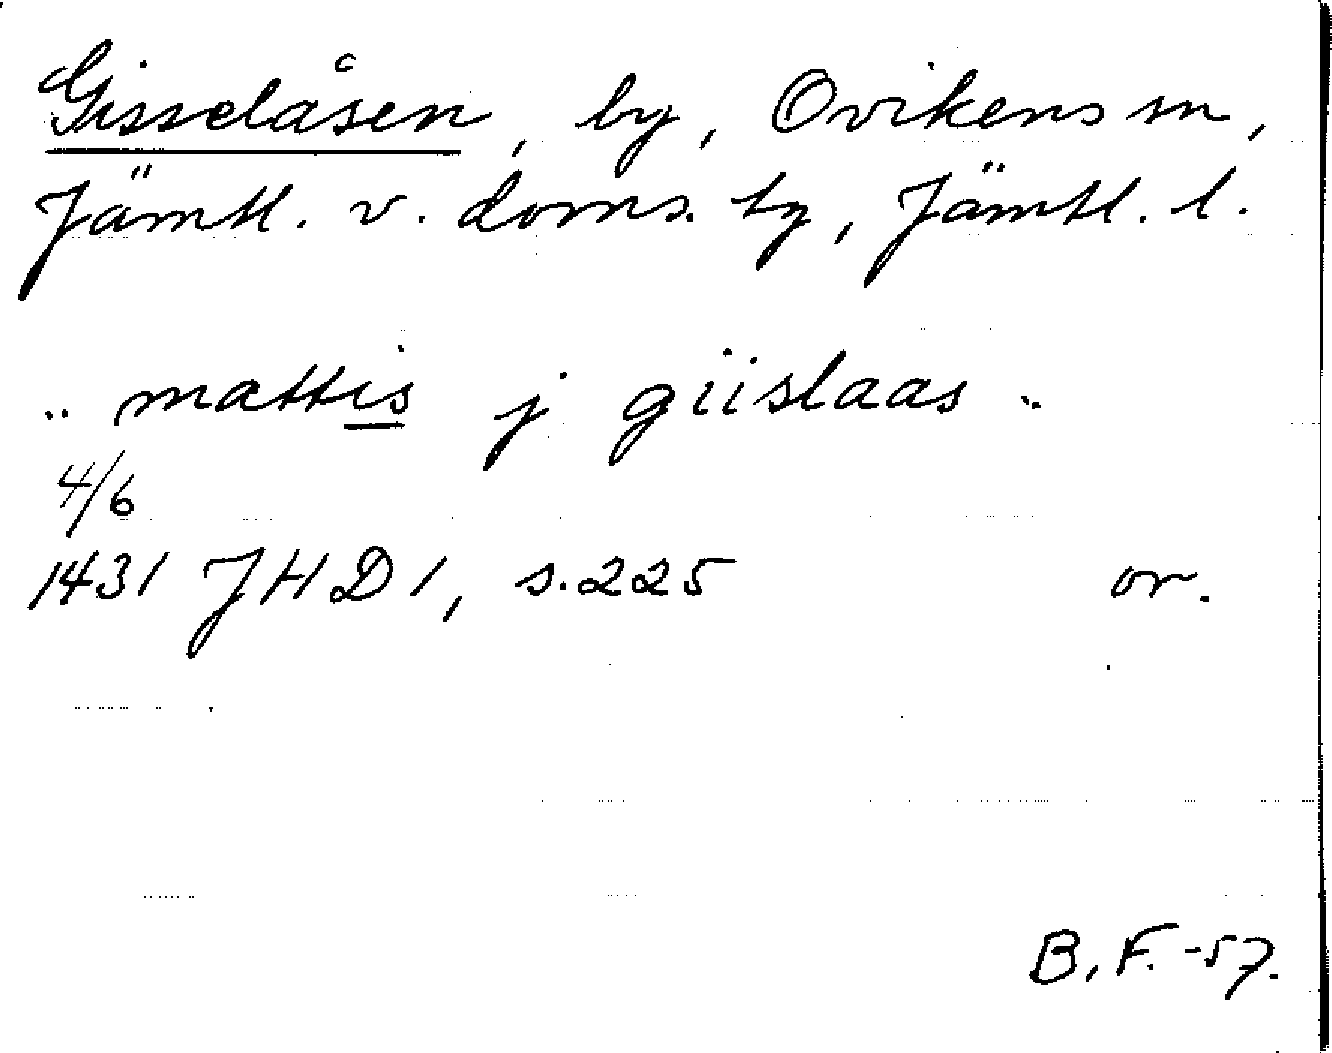 Gisselåsen, by, Ovikens sn,
Jämtl. v. doms. tg, Jämtl. l.
.. mattis j giislaas ..
4/6
1431 JHD 1, s. 225 or.
B. F. -57.